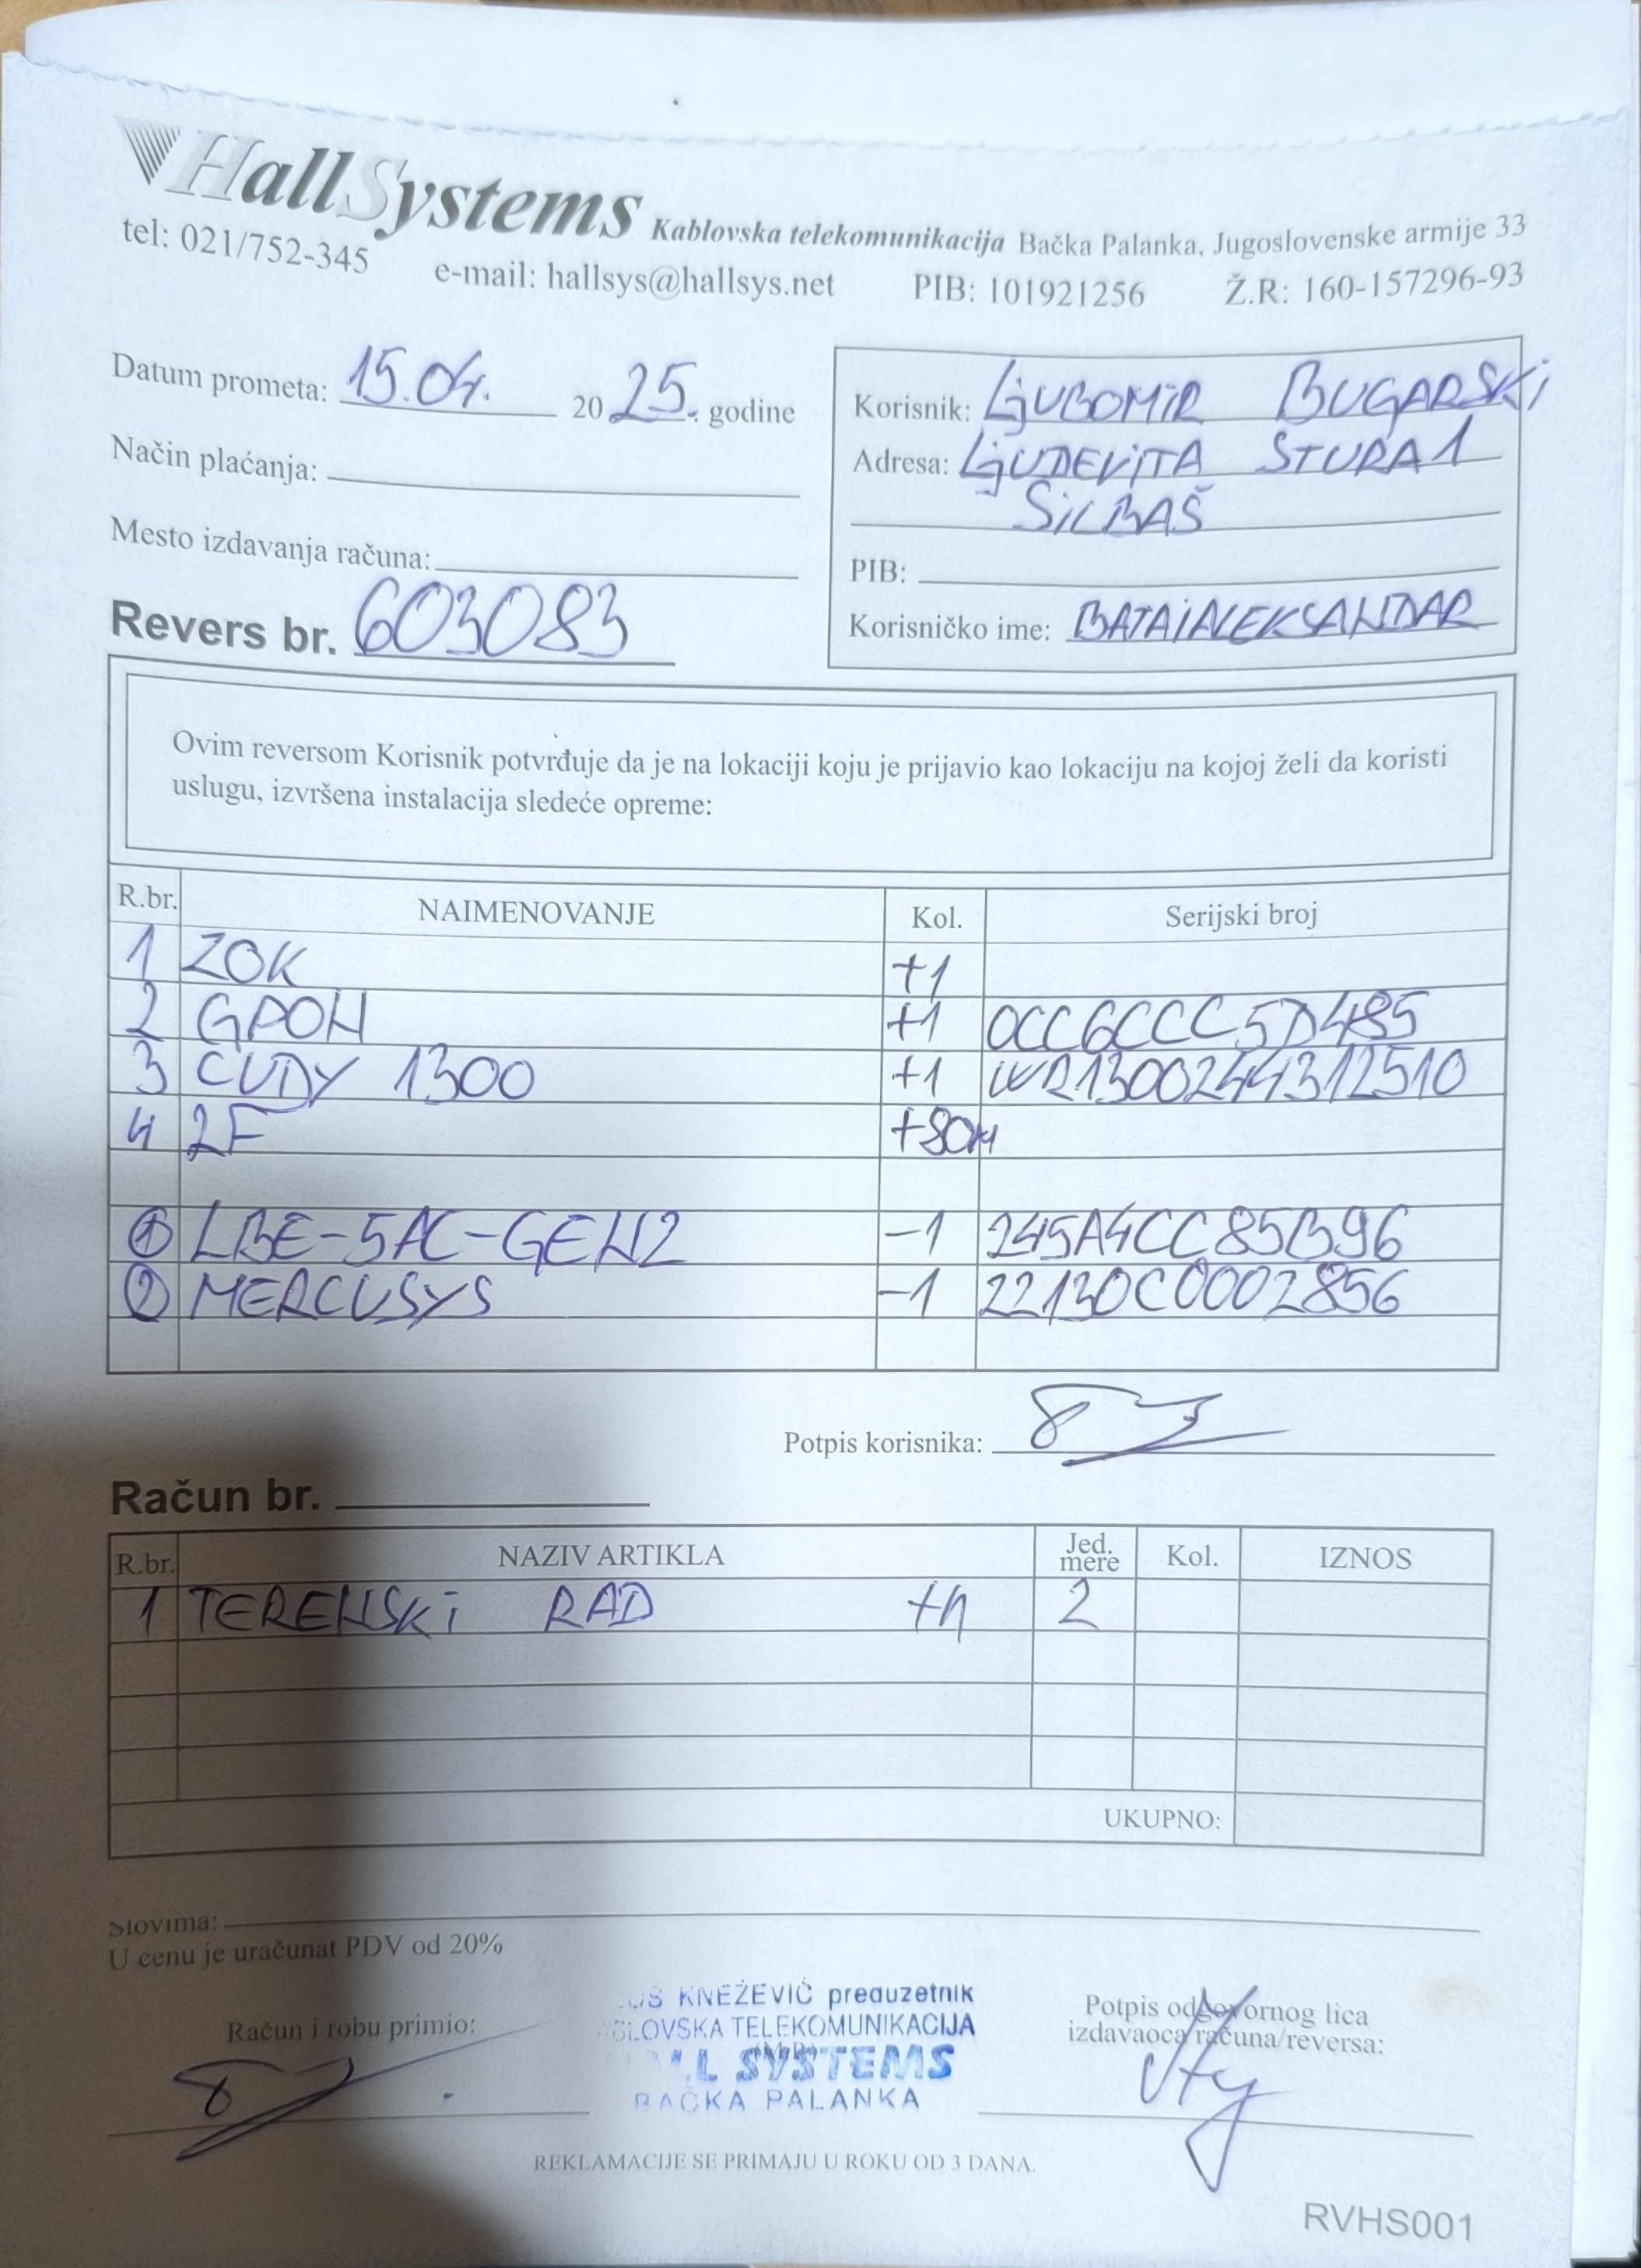 HallSystems Kablovska telekomunikacija Bačka Palanka, Jugoslovenske armije 33
tel: 021/752-345 e-mail: hallsys@hallsys.net PIB: 101921256 Ž.R: 160-157296-93
Datum prometa: 15.04. 2025. godine
Način plaćanja:
Mesto izdavanja računa:
Revers br. 603083
Korisnik: LjUBOMiR BUGARSKi
Adresa: LjUDEViTA ŠTURA 1
SiLBAŠ
PIB:
Korisničko ime: BATAjALEKSANDAR
Ovim reversom Korisnik potvrđuje da je na lokaciji koju je prijavio kao lokaciju na kojoj želi da koristi
uslugu, izvršena instalacija sledeće opreme:
R.br. NAIMENOVANJE Kol. Serijski broj
1 ZOK +1
2 GPON +1 0CC6CCC5D485
3 CUDY 1300 +1 WR1300244312510
4 2F +80M
1 LBE-5AC-GEN2 -1 245A4CC85B96
2 MERCUSYS -1 22130C0002856
Potpis korisnika:
Račun br.
R.br. NAZIV ARTIKLA Jed. mere Kol. IZNOS
1 TERENSKi RAD 2
UKUPNO:
Slovima:
U cenu je uračunat PDV od 20%
Računi i robu primio:
KNEŽEVIĆ preduzetnik
TELEKOMUNIKACIJA
(M.P.)
SYSTEMS
BAČKA PALANKA
Potpis odgovornog lica
izdavaoca računa/reversa:
REKLAMACIJE SE PRIMAJU U ROKU OD 3 DANA.
RVHS001